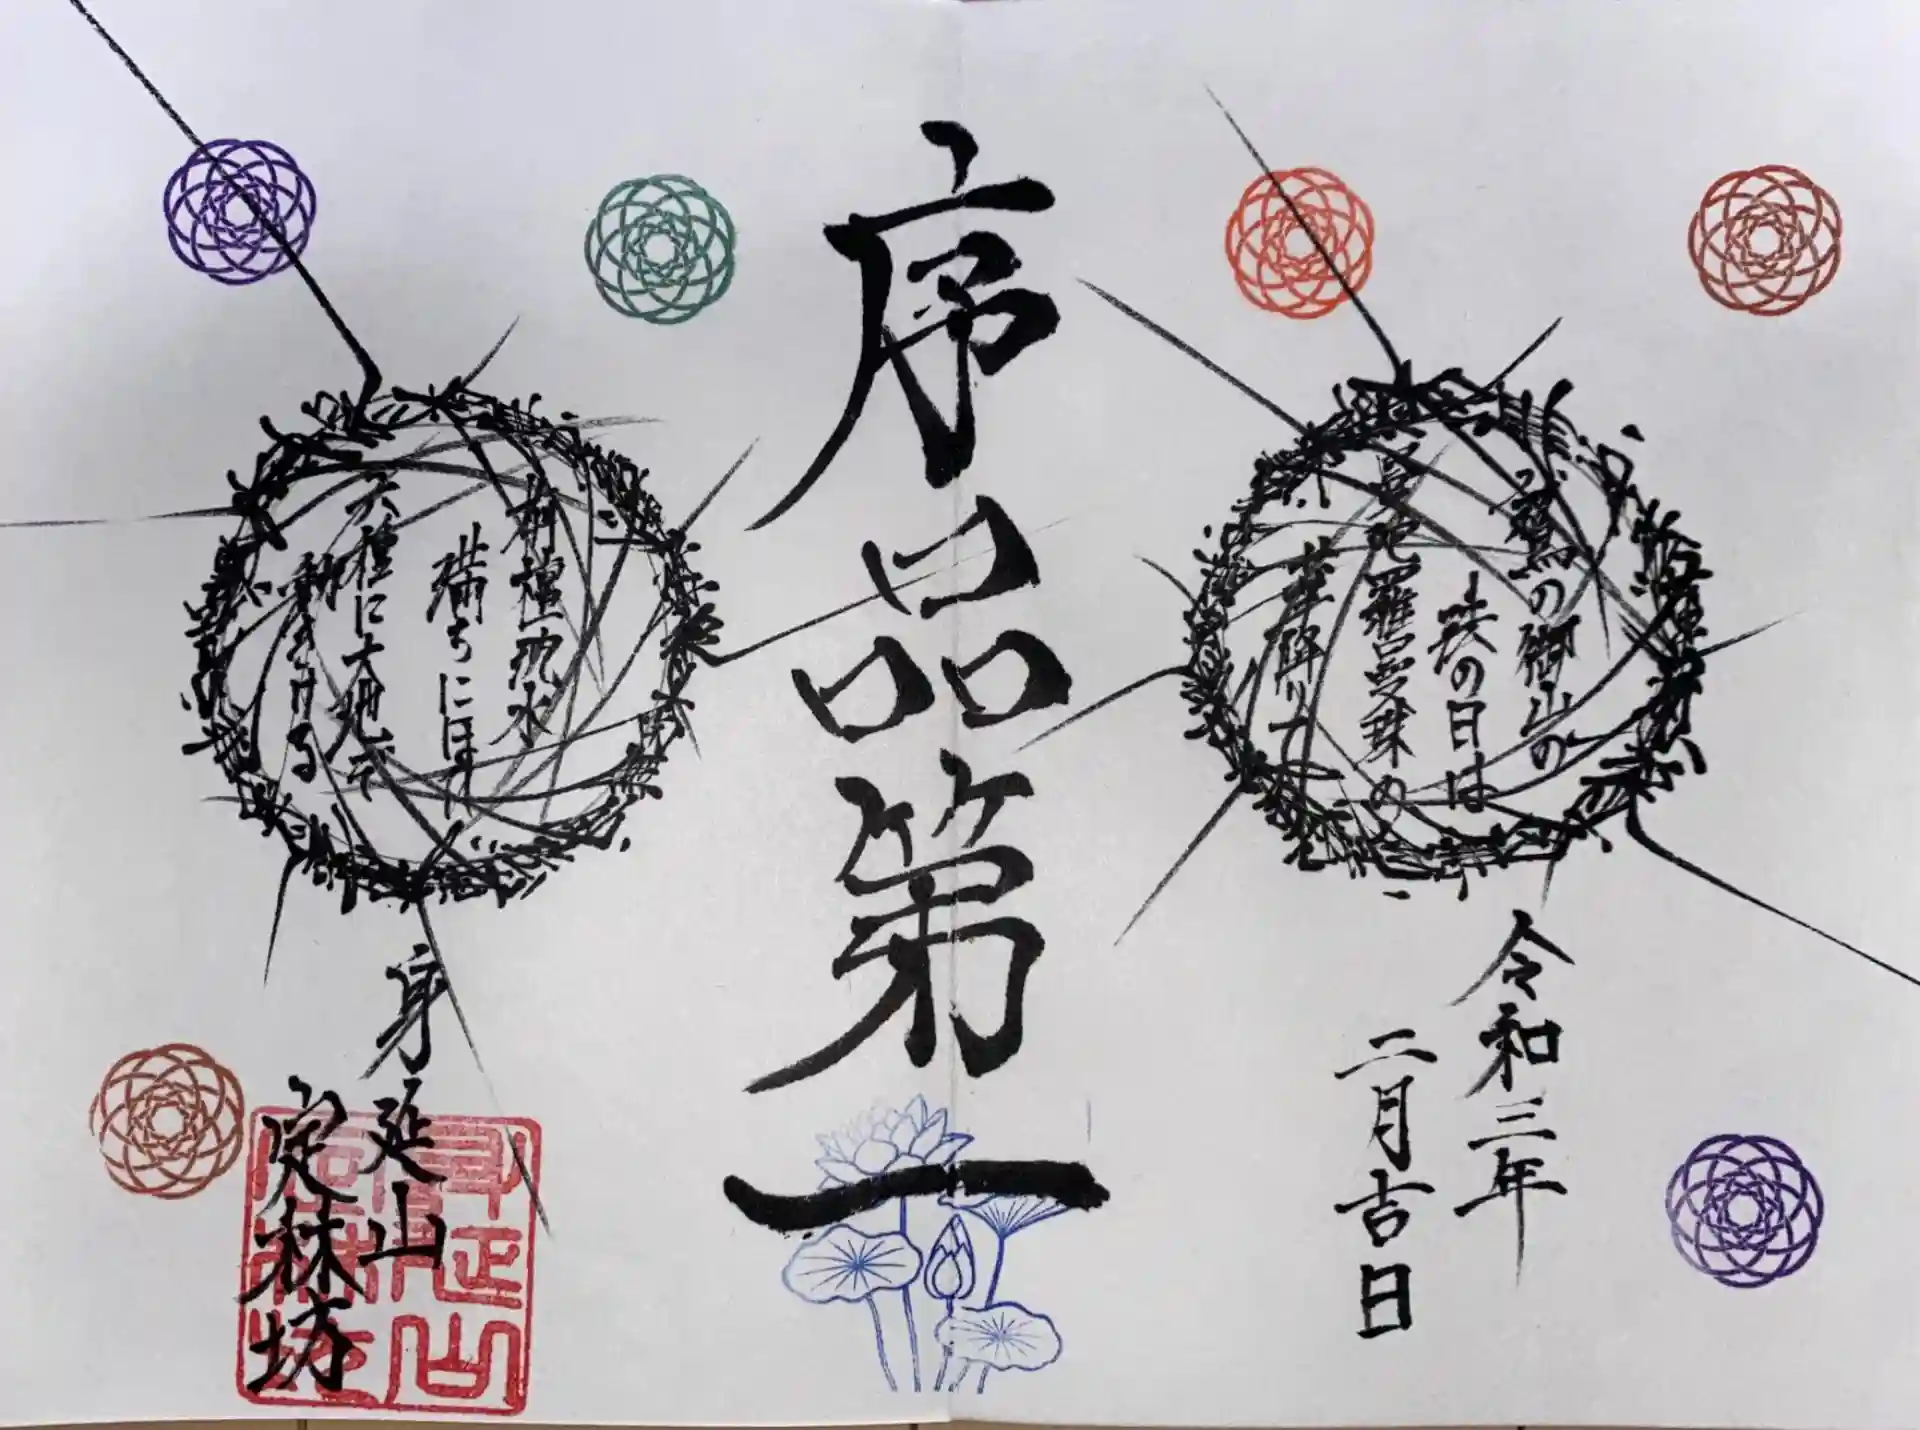 鷲の御山の
法の日は
曼陀羅曼殊の
華降りて
令和三年
二月吉日
序品第一
栴檀沈水
満ちにほひ
六種に大地ぞ
動きける
身延山
定林坊